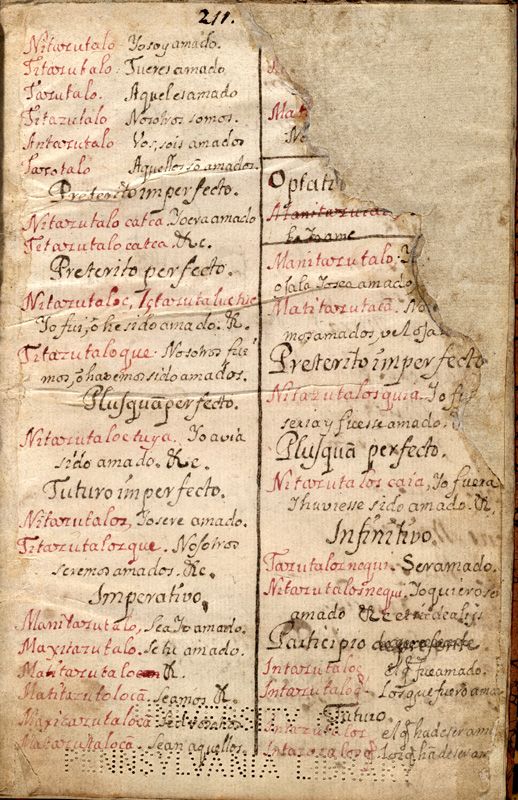 211.
Nitazutalo Yo soy amado.
Titazutalo. Tu eres amado
Tazutalo. Aquel es amado
Titazutalo Nosotros somos.
Antazutalo Vos, sois amados
Tazotalo Aquellos sō amados.
Preterito imperfecto.
Nitazutalo catca. Yo era amado
Titazutalo catca. &c.
Preterito perfecto.
Nitazutaloc,
Yo fui, ò he sido amado. &.
Titazutaloque. Nosotros fui
mos, ò havemos sido amados.
Plusquā perfecto.
Nitazutaloctuya. Yo avia
sido amado. &c.
Futuro imperfecto.
Nitazutaloz, Yo sere amado.
Titazutalozque. Nosotros
seremos amados. &c.
Imperativo,
Manitazutalo, Sea Yo amado.
Maxitazutalo. Se tu amado.
Matazutalo &.
Matitazutolocā. Seamos. &.
Maxitazutalocā
Matazutalocā. Sean aquellos.
Mat
No
Optati
Manitazuta
Manitazutalo. Y
ojala Yo sea amado
Matitazutacā. No
mos amados, vel oja
Preterito imperfecto
Nitazutalosquia. Yo fu
seria y fuesse amado.
Plusquā perfecto.
Nitazutalos caia, Yo fuera
Y huviesse sido amado. &.
Infinitivo
Tazutalosnequi. Ser amado.
Nitazutalosnequi, Yo quiero se
amado &c
Participio
Intazutaloc, el q̄ fue amado.
Intazutaloq̄. Los que fuerō ama
Futuro
Intazutaloz el q̄ ha de ser am
Intazutalozq̄ Los q̄ hā de ser am
UNIVERSITY OF
PENNSYLVANIA LIBRARY